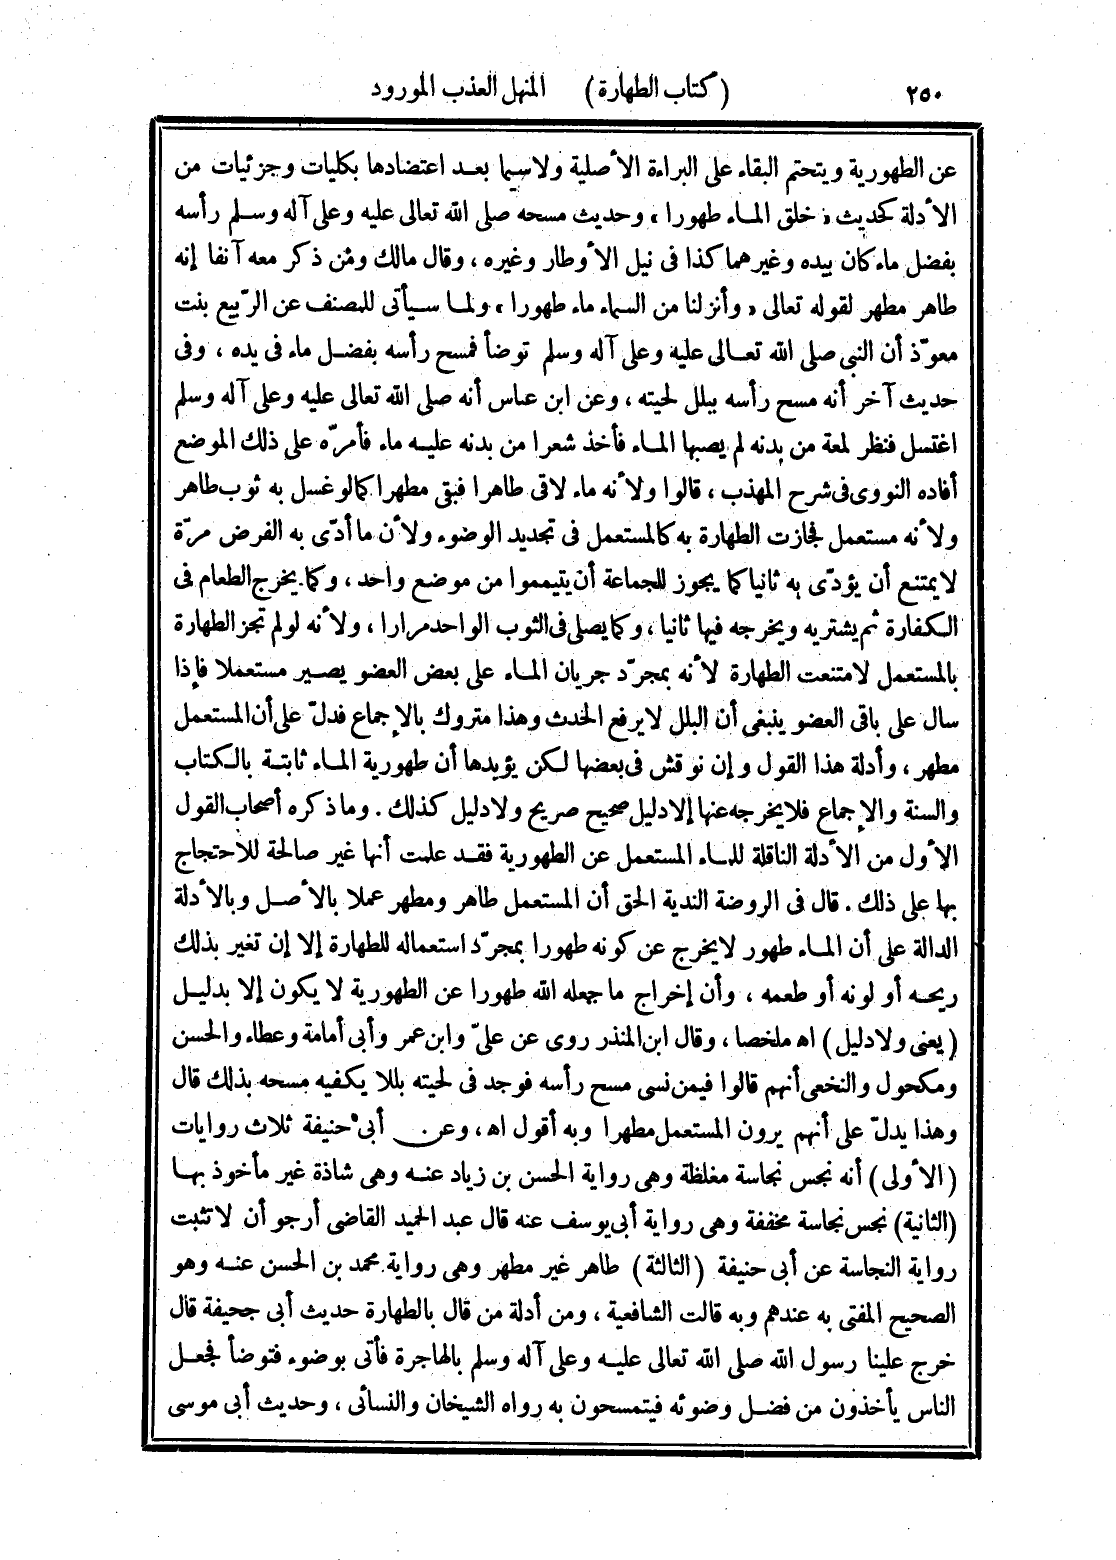 ٢٥٠ (كتاب الطهارة) المنهل العذب المورود
عن الطهورية ويتحتم البقاء على البراءة الأصلية ولاسيما بعد اعتضادها بكليات وجزئيات من
الأدلة كحديث «خلق الماء طهورا» وحديث مسحه صلى الله تعالى عليه وعلى آله وسلم رأسه
بفضل ماء كان بيده وغيرهما كذا فى نيل الأوطار وغيره، وقال مالك ومن ذكر معه آنفا إنه
طاهر مطهر لقوله تعالى «وأنزلنا من السماء ماء طهورا» ولما سيأتى للمصنف عن الربيع بنت
معوّذ أن النبى صلى الله تعالى عليه وعلى آله وسلم توضأ فمسح رأسه بفضل ماء فى يده، وفى
حديث آخر أنه مسح رأسه ببلل لحيته، وعن ابن عباس أنه صلى الله تعالى عليه وعلى آله وسلم
اغتسل فنظر لمعة من بدنه لم يصبها الماء فأخذ شعرا من بدنه عليه ماء فأمرّه على ذلك الموضع
أفاده النووى فى شرح المهذب، قالوا ولأنه ماء لاقى طاهرا فبقى مطهرا كما لو غسل به ثوب طاهر
ولأنه مستعمل فجازت الطهارة به كالمستعمل فى تجديد الوضوء ولأن ما أدّى به الفرض مرّة
لا يمتنع أن يؤدّى به ثانيا كما يجوز للجماعة أن يتيمموا من موضع واحد، وكما يخرج الطعام فى
الكفارة ثم يشتريه ويخرجه فيها ثانيا، وكما يصلى فى الثوب الواحد مرارا، ولأنه لو لم تجز الطهارة
بالمستعمل لامتنعت الطهارة لأنه بمجرّد جريان الماء على بعض العضو يصير مستعملا فإذا
سال على باقى العضو ينبغى أن البلل لا يرفع الحدث وهذا متروك بالإجماع فدلّ على أن المستعمل
مطهر، وأدلة هذا القول وإن نوقش فى بعضها لكن يؤيدها أن طهورية الماء ثابتة بالكتاب
والسنة والإجماع فلا يخرجه عنها إلا دليل صحيح صريح ولا دليل كذلك. وما ذكره أصحاب القول
الأول من الأدلة الناقلة للماء المستعمل عن الطهورية فقد علمت أنها غير صالحة للاحتجاج
بها على ذلك. قال فى الروضة الندية الحق أن المستعمل طاهر ومطهر عملا بالأصل وبالأدلة
الدالة على أن الماء طهور لا يخرج عن كونه طهورا بمجرّد استعماله للطهارة إلا إن تغير بذلك
ريحه أو لونه أو طعمه، وأن إخراج ما جعله الله طهورا عن الطهورية لا يكون إلا بدليل
(يعنى ولا دليل) اه ملخصا، وقال ابن المنذر روى عن علىّ وابن عمر وأبى أمامة وعطاء والحسن
ومكحول والنخعى أنهم قالوا فيمن نسى مسح رأسه فوجد فى لحيته بللا يكفيه مسحه بذلك قال
وهذا يدلّ على أنهم يرون المستعمل مطهرا وبه أقول اه، وعن أبى حنيفة ثلاث روايات
(الأولى) أنه نجس نجاسة مغلظة وهى رواية الحسن بن زياد عنه وهى شاذة غير مأخوذ بها
(الثانية) نجس نجاسة مخففة وهى رواية أبى يوسف عنه قال عبد الحميد القاضى أرجو أن لا تثبت
رواية النجاسة عن أبى حنيفة (الثالثة) طاهر غير مطهر وهى رواية محمد بن الحسن عنه وهو
الصحيح المفتى به عندهم وبه قالت الشافعية، ومن أدلة من قال بالطهارة حديث أبى جحيفة قال
خرج علينا رسول الله صلى الله تعالى عليه وعلى آله وسلم بالهاجرة فأتى بوضوء فتوضأ فجعل
الناس يأخذون من فضل وضوئه فيتمسحون به رواه الشيخان والنسائى، وحديث أبى موسى